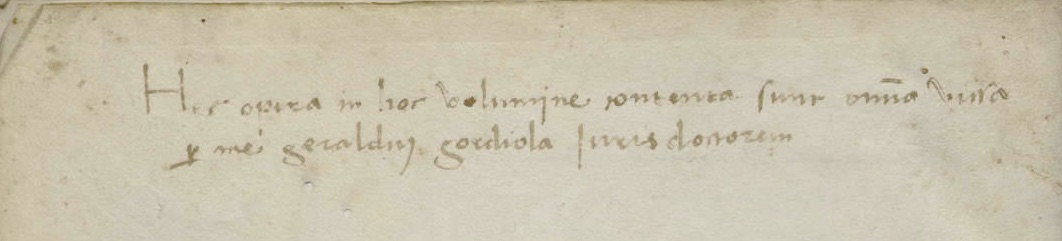 Hec opera in hoc volumine contenta sunt omnia vissa
per me geraldum gordiola Iuris doctorem